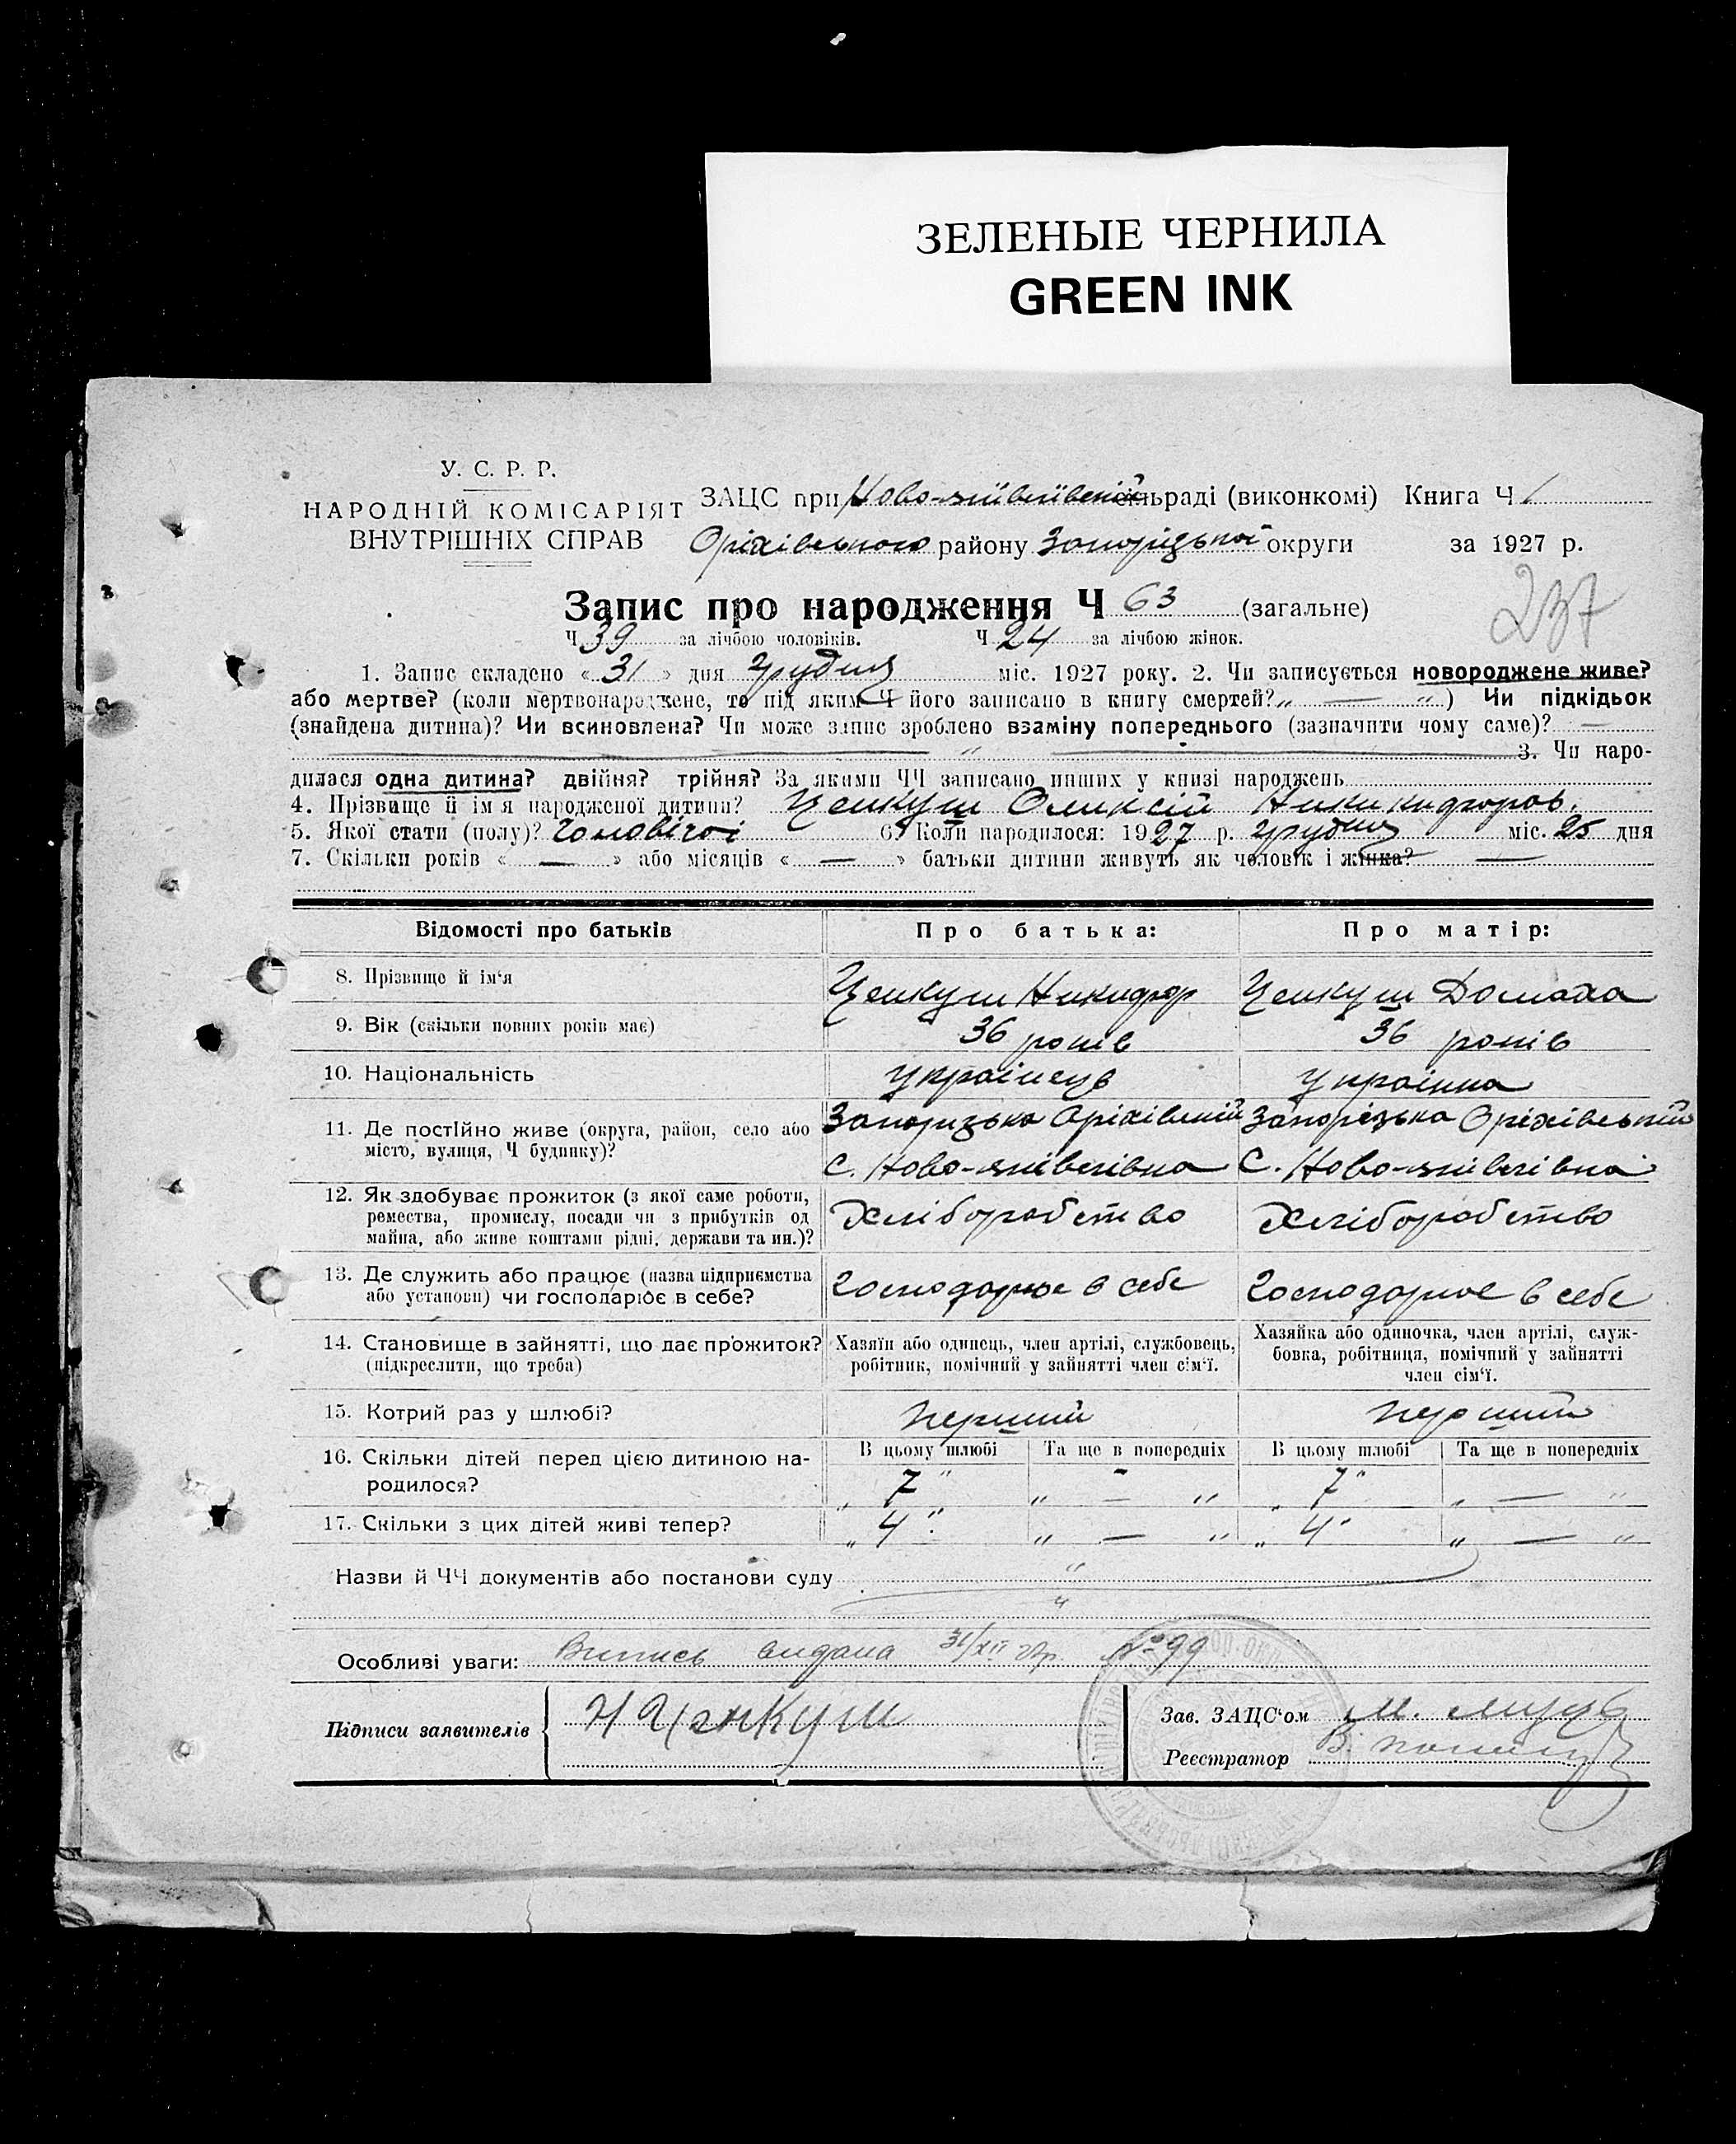 ЗЕЛЕНЫЕ ЧЕРНИЛА
GREEN INK
У. С. Р. Р.
НАРОДНІЙ КОМІСАРІЯТ
ВНУТРІШНІХ СПРАВ
ЗАЦС при Ново- сільраді (виконкомі) Книга Ч 1
Оріхівського району Запорізької округи за 1927 р.
Запис про народження Ч 63 (загальне)
237
Ч 39 за лічбою чоловіків. Ч 24 за лічбою жінок.
1. Запис складено « 31 » дня грудня міс. 1927 року. 2. Чи записується новороджене живе?
або мертве? (коли мертвонароджене, то під яким Ч його записано в книгу смертей? „ — “) Чи підкідьок
(знайдена дитина)? Чи всиновлена? Чи може запис зроблено взаміну попереднього (зазначити чому саме)? —
3. Чи наро-
дилася одна дитина? двійня? трійня? За якими ЧЧ записано инших у книзі народжень
4. Прізвище й ім'я народженої дитини? Ценкуш Олексій
5. Якої стати (полу)? чоловічої 6. Коли народилося: 1927 р. грудня міс. 25 дня
7. Скільки років « — » або місяців « — » батьки дитини живуть як чоловік і жінка? —
Відомості про батьків Про батька: Про матір:
8. Прізвище й ім'я Ценкуш Никифор Ценкуш Домаха
9. Вік (скільки повних років має) 36 років 36 років
10. Національність українець українка
11. Де постійно живе (округа, район, село або місто, вулиця, Ч будинку)? Запорізька Оріхівський Запорізька Оріхівський
с. Ново- с. Ново-
12. Як здобуває прожиток (з якої саме роботи,
ремества, промислу, посади чи з прибутків од
майна, або живе коштами рідні, держави та ин.)? Хліборобство Хліборобство
13. Де служить або працює (назва підприємства
або установи) чи господарює в себе? Господарює в себе Господарює в себе
14. Становище в зайнятті, що дає прожиток?
(підкреслити, що треба)
Хазяїн або одинець, член артілі, службовець,
робітник, помічний у зайнятті член сім'ї.
Хазяйка або одиночка, член артілі, служ-
бовка, робітниця, помічний у зайнятті
член сім'ї.
15. Котрий раз у шлюбі? перший перший
16. Скільки дітей перед цією дитиною на-
родилося?
В цьому шлюбі Та ще в попередніх В цьому шлюбі Та ще в попередніх
„ 7 “ „ — “ „ 7 “ „ — “
17. Скільки з цих дітей живі тепер? „ 4 “ „ — “ „ 4 “ „ — “
Назви й ЧЧ документів або постанови суду
Особливі уваги: Випись видана 31/XII 27р. № 99
Підписи заявителів Н Цэнкуш
Зав. ЗАЦС'ом М.
Реєстратор В.